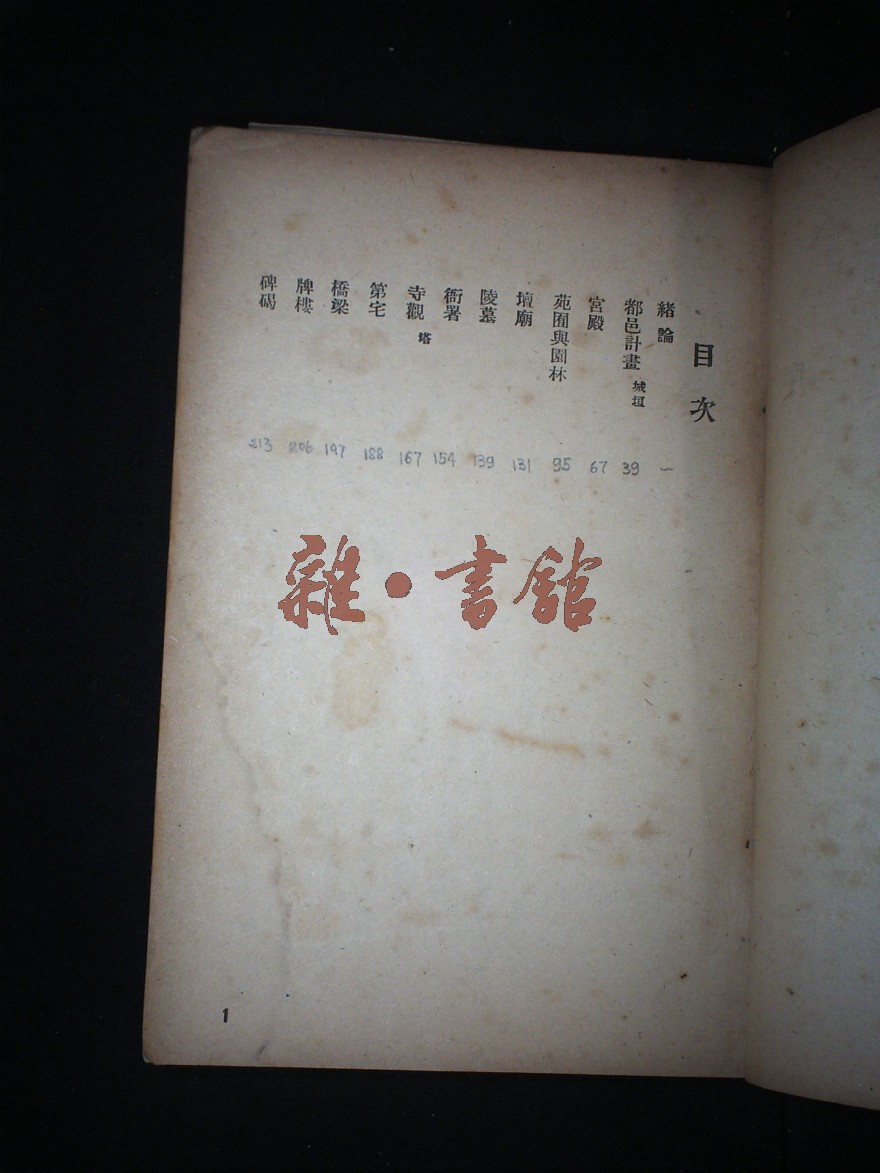 目次
緒論 一
都邑計畫 城垣 39
宮殿 67
苑囿與園林 95
壇廟 131
陵墓 139
衙署 154
寺觀 塔 167
第宅 188
橋梁 197
牌樓 206
碑碣 213
雜·書館
1